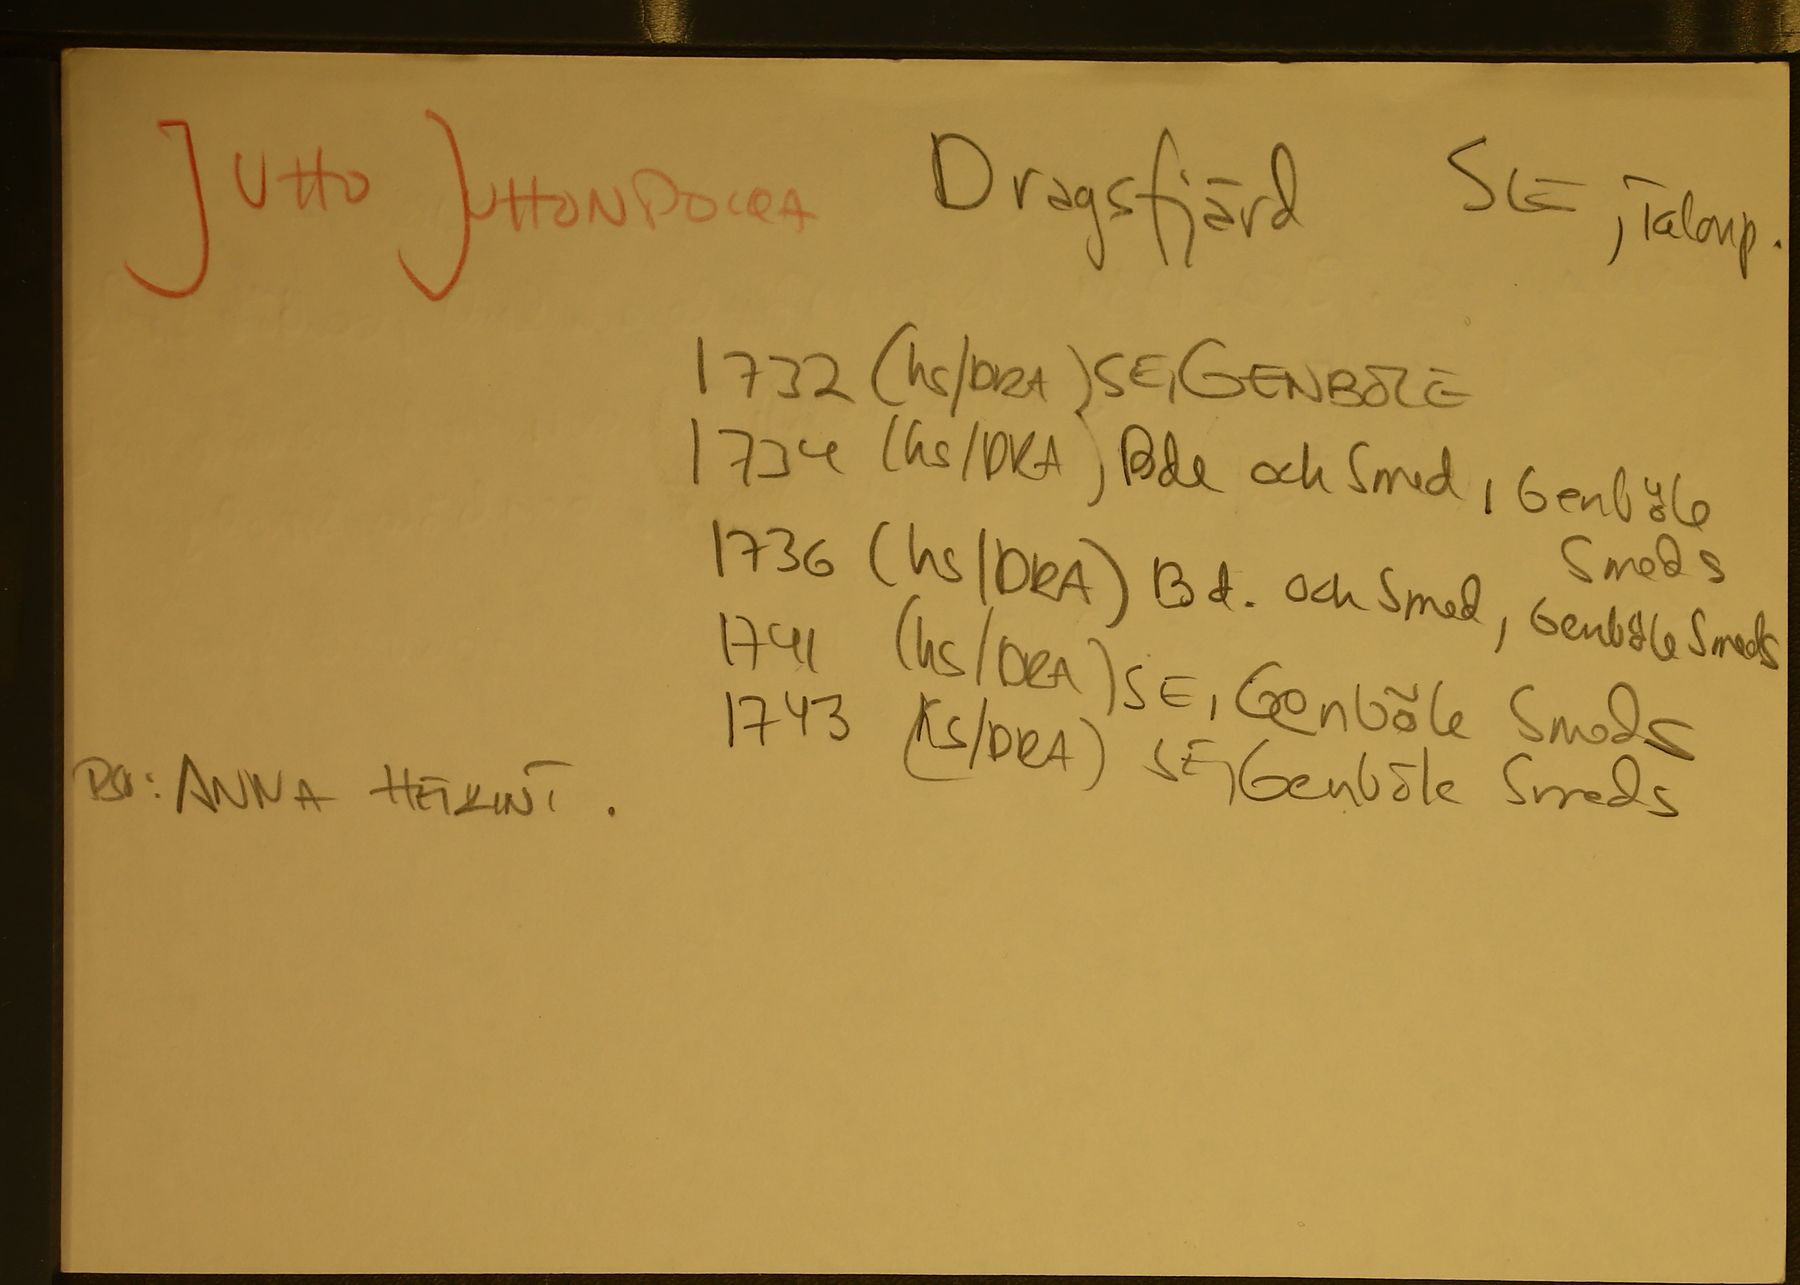 JUTTO JUTTONPOIKA Dragsfjärd SE, Talonp.
1732 (hs/DRA) SE, GENBÖLE
1734 (hs/DRA), Bde och Smed, Genböle Smeds
1736 (hs/DRA) Bd. och Smed, Genböle Smeds
1741 (hs/DRA) SE, Genböle Smeds
1743 (ks/DRA) SE, Genböle Smeds
ANNA HEIKINT.